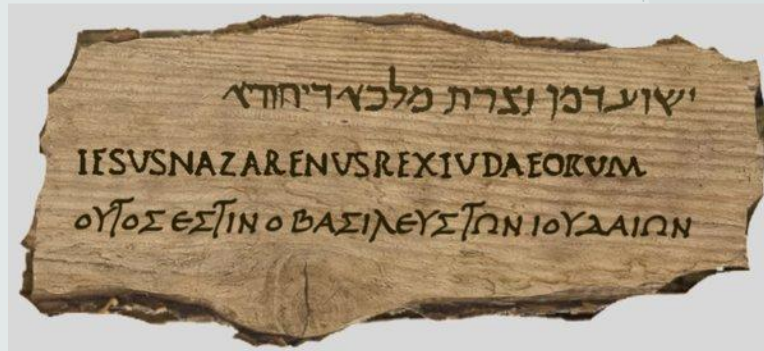 ישוע דמן נצרת מלכא דיהודא
IESUSNAZARENUSREXIVDAEORVM
ΟΥΤΟΣ ΕΣΤΙΝ Ο ΒΑΣΙΛΕΥΣ ΤΩΝ ΙΟΥΔΑΙΩΝ